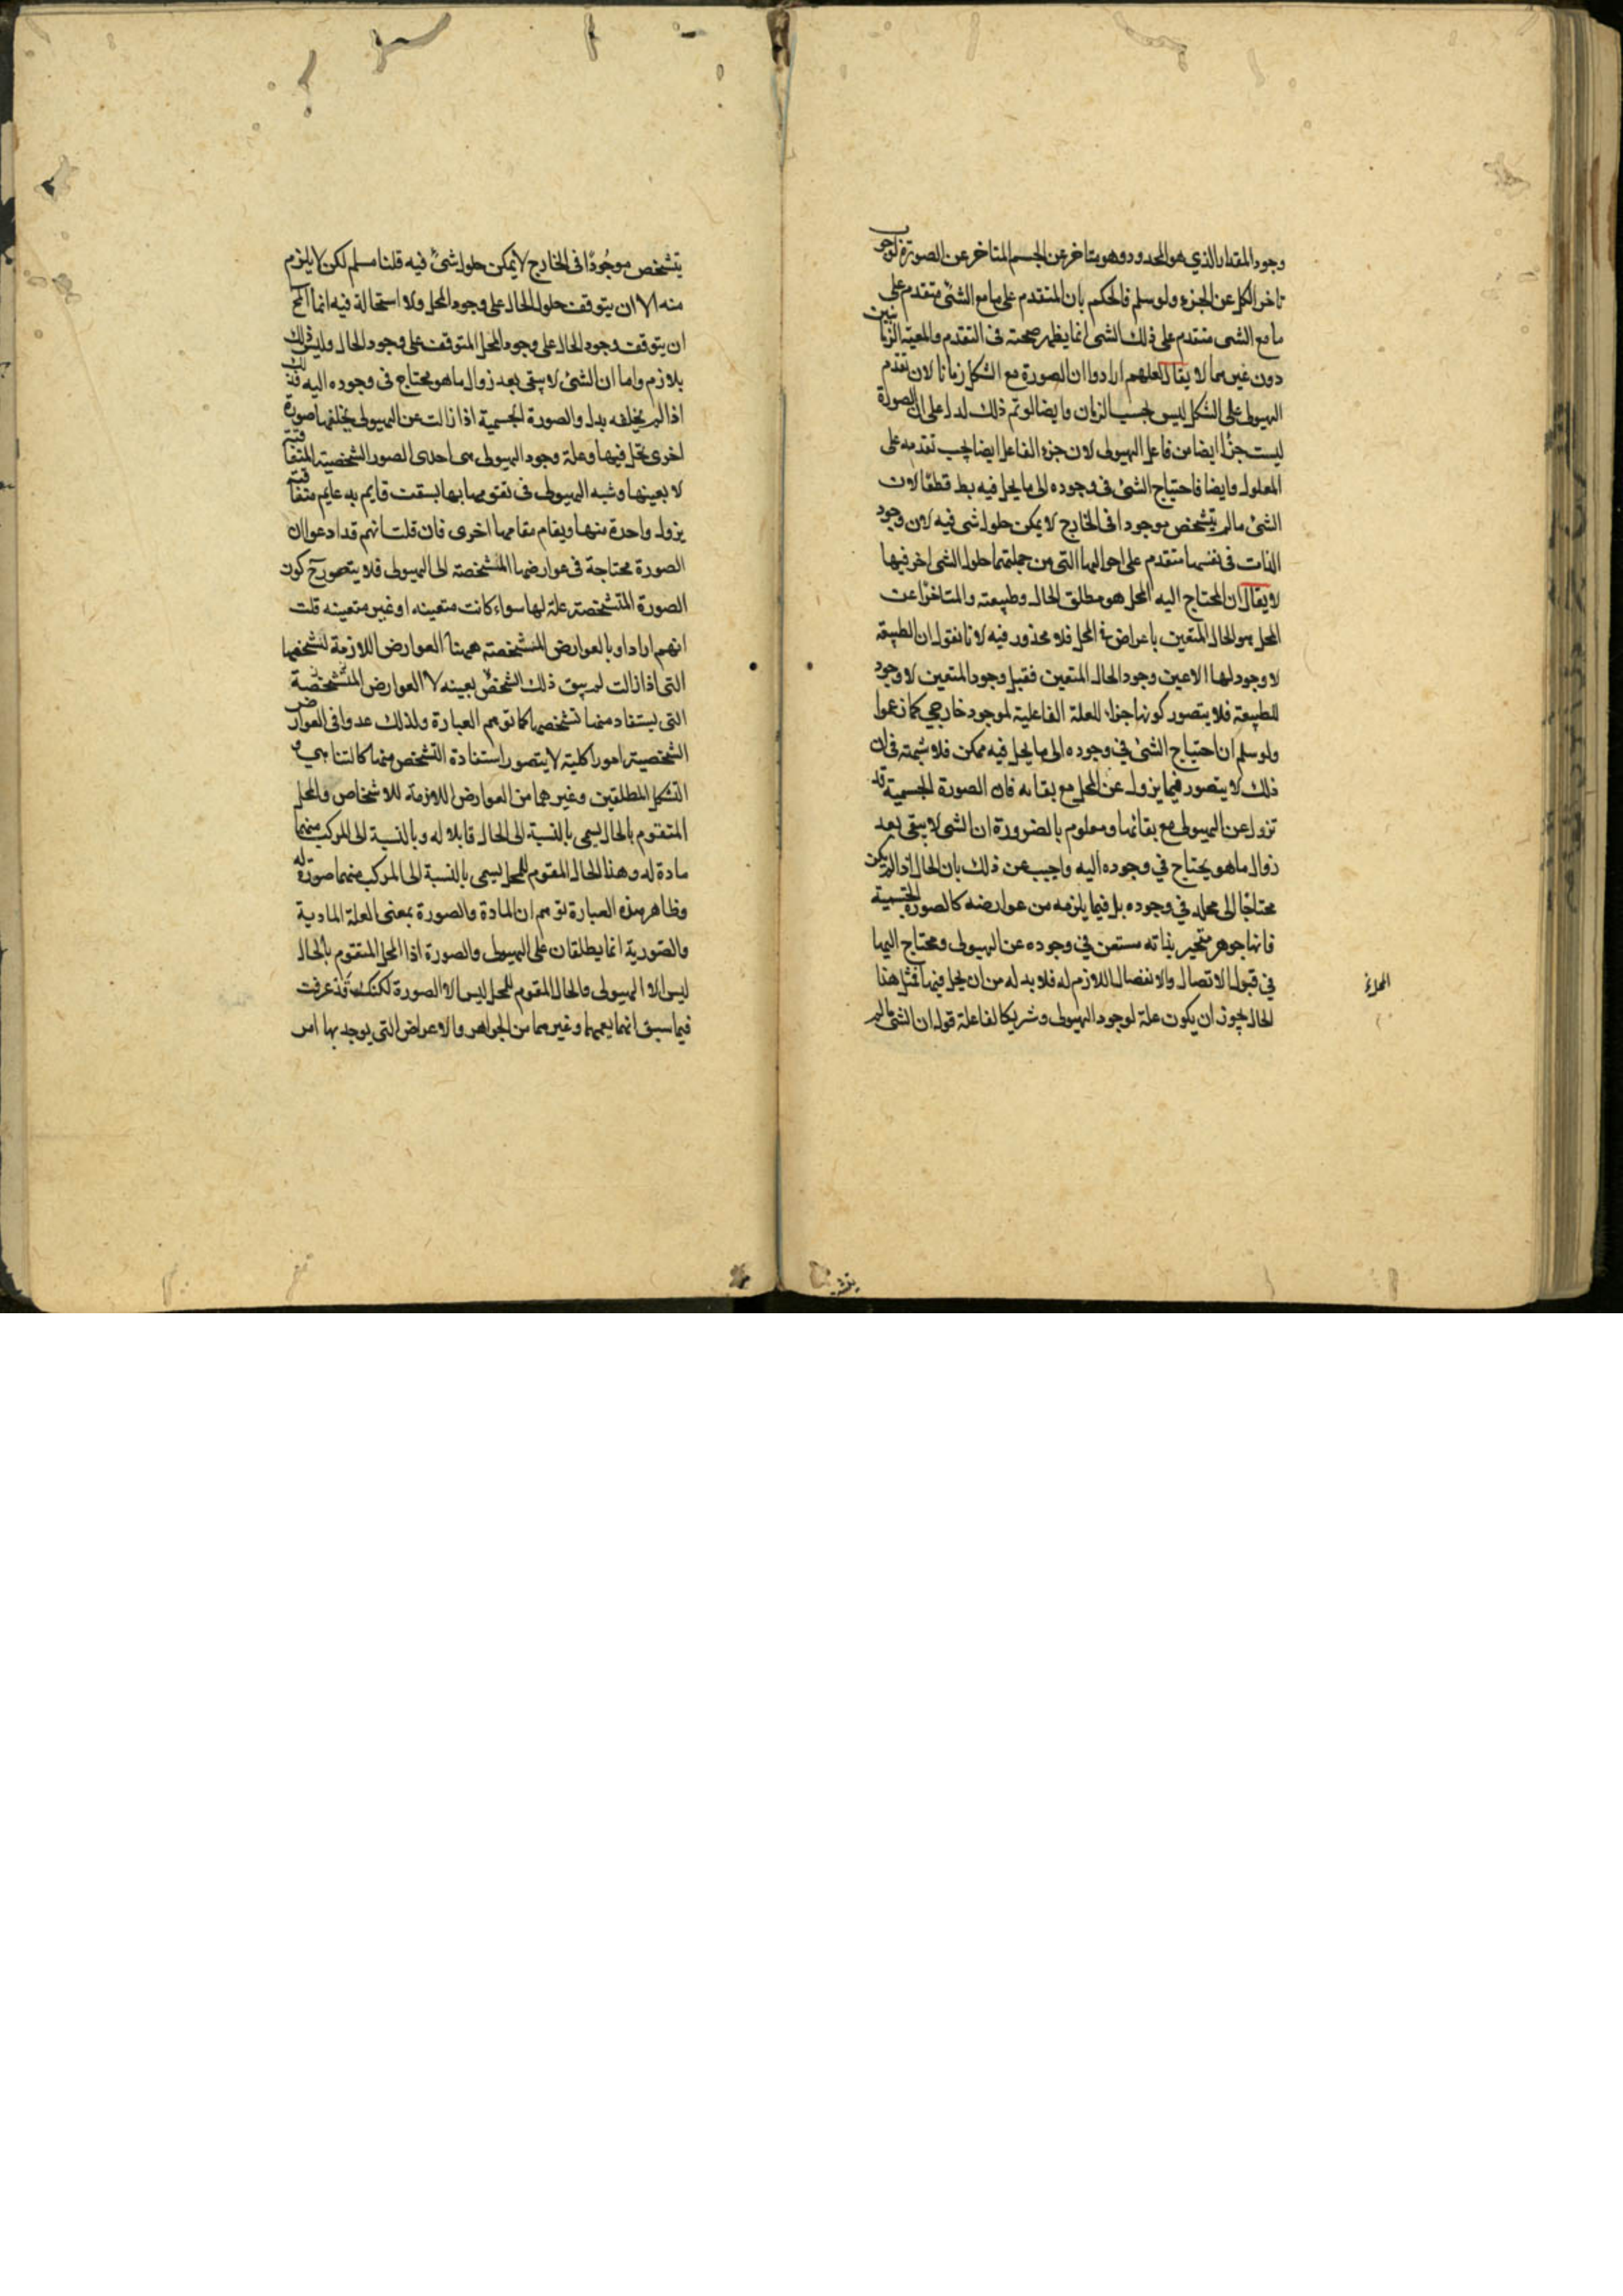 وجود المقدار الذي هو المحدود وهو متاخر عن الجسم المتاخر عن الصورة لوجوب
تاخر الكل عن الجزء ولو سلم فالحكم بان المتقدم على ما مع الشئ متقدم على
ما مع الشى متقدم على ذلك الشى انما يظهر صحته فى التقدم والمعية الزمانيين
دون غيرهما لا يقال لعلهم ارادوا ان الصورة مع الشكل زمانا لان تقدم
الهيولى على الشكل ليس بحسب الزمان وايضا لو تم ذلك لدل على ان الصورة
ليست جزأ ايضا من فاعل الهيولى لان جزء الفاعل ايضا يجب تقدمه على
المعلول وايضا فاحتياج الشئ فى وجوده الى ما يحل فيه بط قطعًا لان
الشئ مالم يتشخص موجودا فى الخارج لا يمكن حلول شى فيه لان وجود
الذات فى نفسها متقدم على احوالها التى من جملتها حلول الشى اخر فيها
لا يقال ان المحتاج اليه المحل هو مطلق الحال وطبيعته والمتاخر عن
المحل هو الحال المتعين باعراض فى المحل فلا محذور فيه لانا نقول ان الطبيعة
لا وجود لها الا عين وجود الحال المتعين فقبل وجود المتعين لا وجود
للطبيعة فلا يتصور كونها جزءا للعلة الفاعلية لموجود خارجي كما زعموا
ولو سلم ان احتياج الشئ في وجوده الى ما يحل فيه ممكن فلا شبهة فى ان
ذلك لا يتصور فيما يزول عن المحل مع بقائه فان الصورة الجسمية قد
تزول عن الهيولى مع بقائها ومعلوم بالضرورة ان الشى لا يبقى بعد
زوال ما هو يحتاج في وجوده اليه واجيب عن ذلك بان الحال اذا لم يكن
محتاجًا الى محله في وجوده بل فيما يلزمه من عوارضه كالصورة الجسمية
فانها جوهر متحيز بذاته مستغن في وجوده عن الهيولى ومحتاج اليها
في قبول الاتصال والانفصال اللازم له فلا بد له من ان يحل فيها فمثل هذا
الحال يجوز ان يكون علة لوجود الهيولى وشريكا لفاعلة قوله ان الشى مالم
يتشخص موجودًا فى الخارج لا يمكن حلول شئ فيه قلنا مسلم لكن لا يلزم
منه الا ان يتوقف حلول الحال على وجود المحل ولا استحالة فيه انما المح
ان يتوقف وجود الحال على وجود المحل المتوقف على وجود الحال وليس ذلك
بلازم واما ان الشئ لا يبقى بعد زوال ما هو محتاج فى وجوده اليه فذلك
اذا لم يخلفه بدل والصورة الجسمية اذا زالت عن الهيولى يخلفها صورة
اخرى تحل فيها وعلة وجود الهيولى هى احدى الصور الشخصية المتعاقبة
لا بعينها وشبه الهيولى فى تقومها بها بسقف قايم بدعايم متعاقبة
يزول واحدة منها ويقام مقامها اخرى فان قلت انهم قد ادعوا ان
الصورة محتاجة فى عوارضها المشخصة الى الهيولى فلا يتصور ح كون
الصورة المتشخصة علة لها سواء كانت متعينه او غير متعينه قلت
انهم ارادوا بالعوارض المشخصة ههنا العوارض اللازمة لتشخصها
التى اذا زالت لم يبق ذلك الشخص بعينه لا العوارض المتشخصة
التى يستفاد منها تشخصها كما توهم العبارة ولذلك عدوا فى العوارض
الشخصية امورا كلية لا يتصور استفادة التشخص منها كالتناهي و
التشكل المطلقين وغيرهما من العوارض اللازمة للاشخاص والمحل
المتقوم بالحال يسمى بالنسبة الى الحال قابلا له وبالنسبة الى المركب منهما
مادة له وهذا الحال المقوم للمحل يسمى بالنسبة الى المركب منهما صورة له
وظاهر هذه العبارة توهم ان المادة والصورة بمعنى العلة المادية
والصورية انما يطلقان على الهيولى والصورة اذا المحل المتقوم بالحال
ليس الا الهيولى والحال المقوم للمحل ليس الا الصورة لكنك قد عرفت
فيما سبق انهما يعمهما وغيرهما من الجواهر والاعراض التى يوجد بها امر